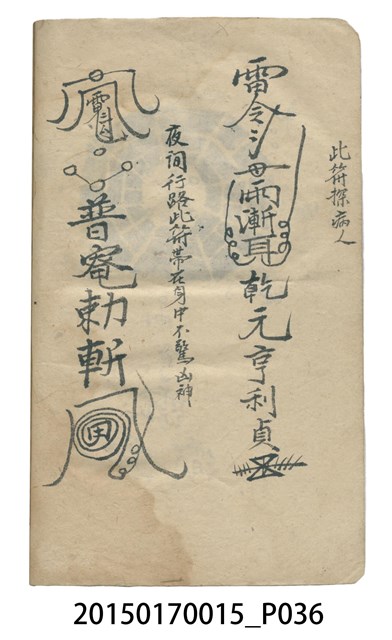 此符探病人
雷令 毋雨漸耳乾元亨利貞
夜间行路此符帶在身中不驚凶神
普庵勅斬
20150170015_P036